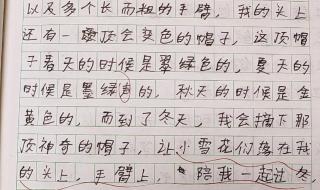 以及多个长而粗的手臂，我的头上
还有一顶会变色的帽子，这顶帽
子春天的时候是翠绿色的，夏天的
时候是墨绿的，秋天的时候是金
黄色的，而到了冬天，我会摘下那
顶神奇的帽子，让小雪花们落在我
的头上，手臂上，陪我一起过冬，